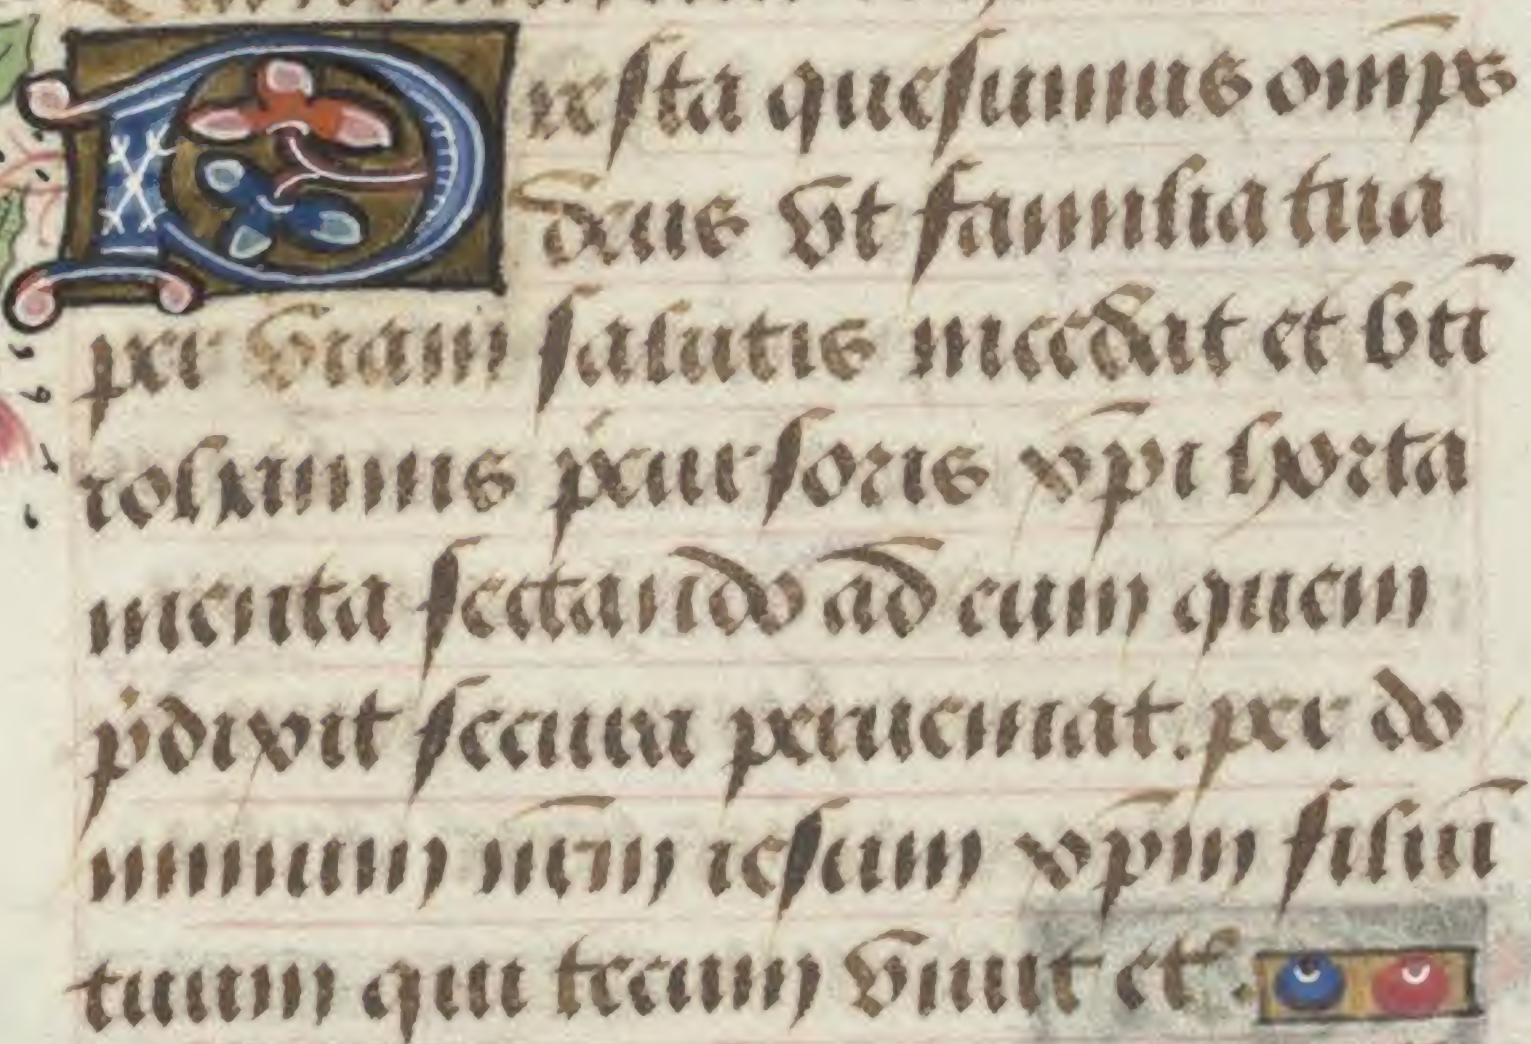 Presta quesumus omp̄s
deus vt familia tua
per viam salutis incedat et bti̅
iohannis p̄cursoris xp̄i horta
menta sectando ad eum quem
p̄dixit secura perueniat. per do
minum nr̄m iesum xp̄m filiū
tuum qui tecum viuit et.